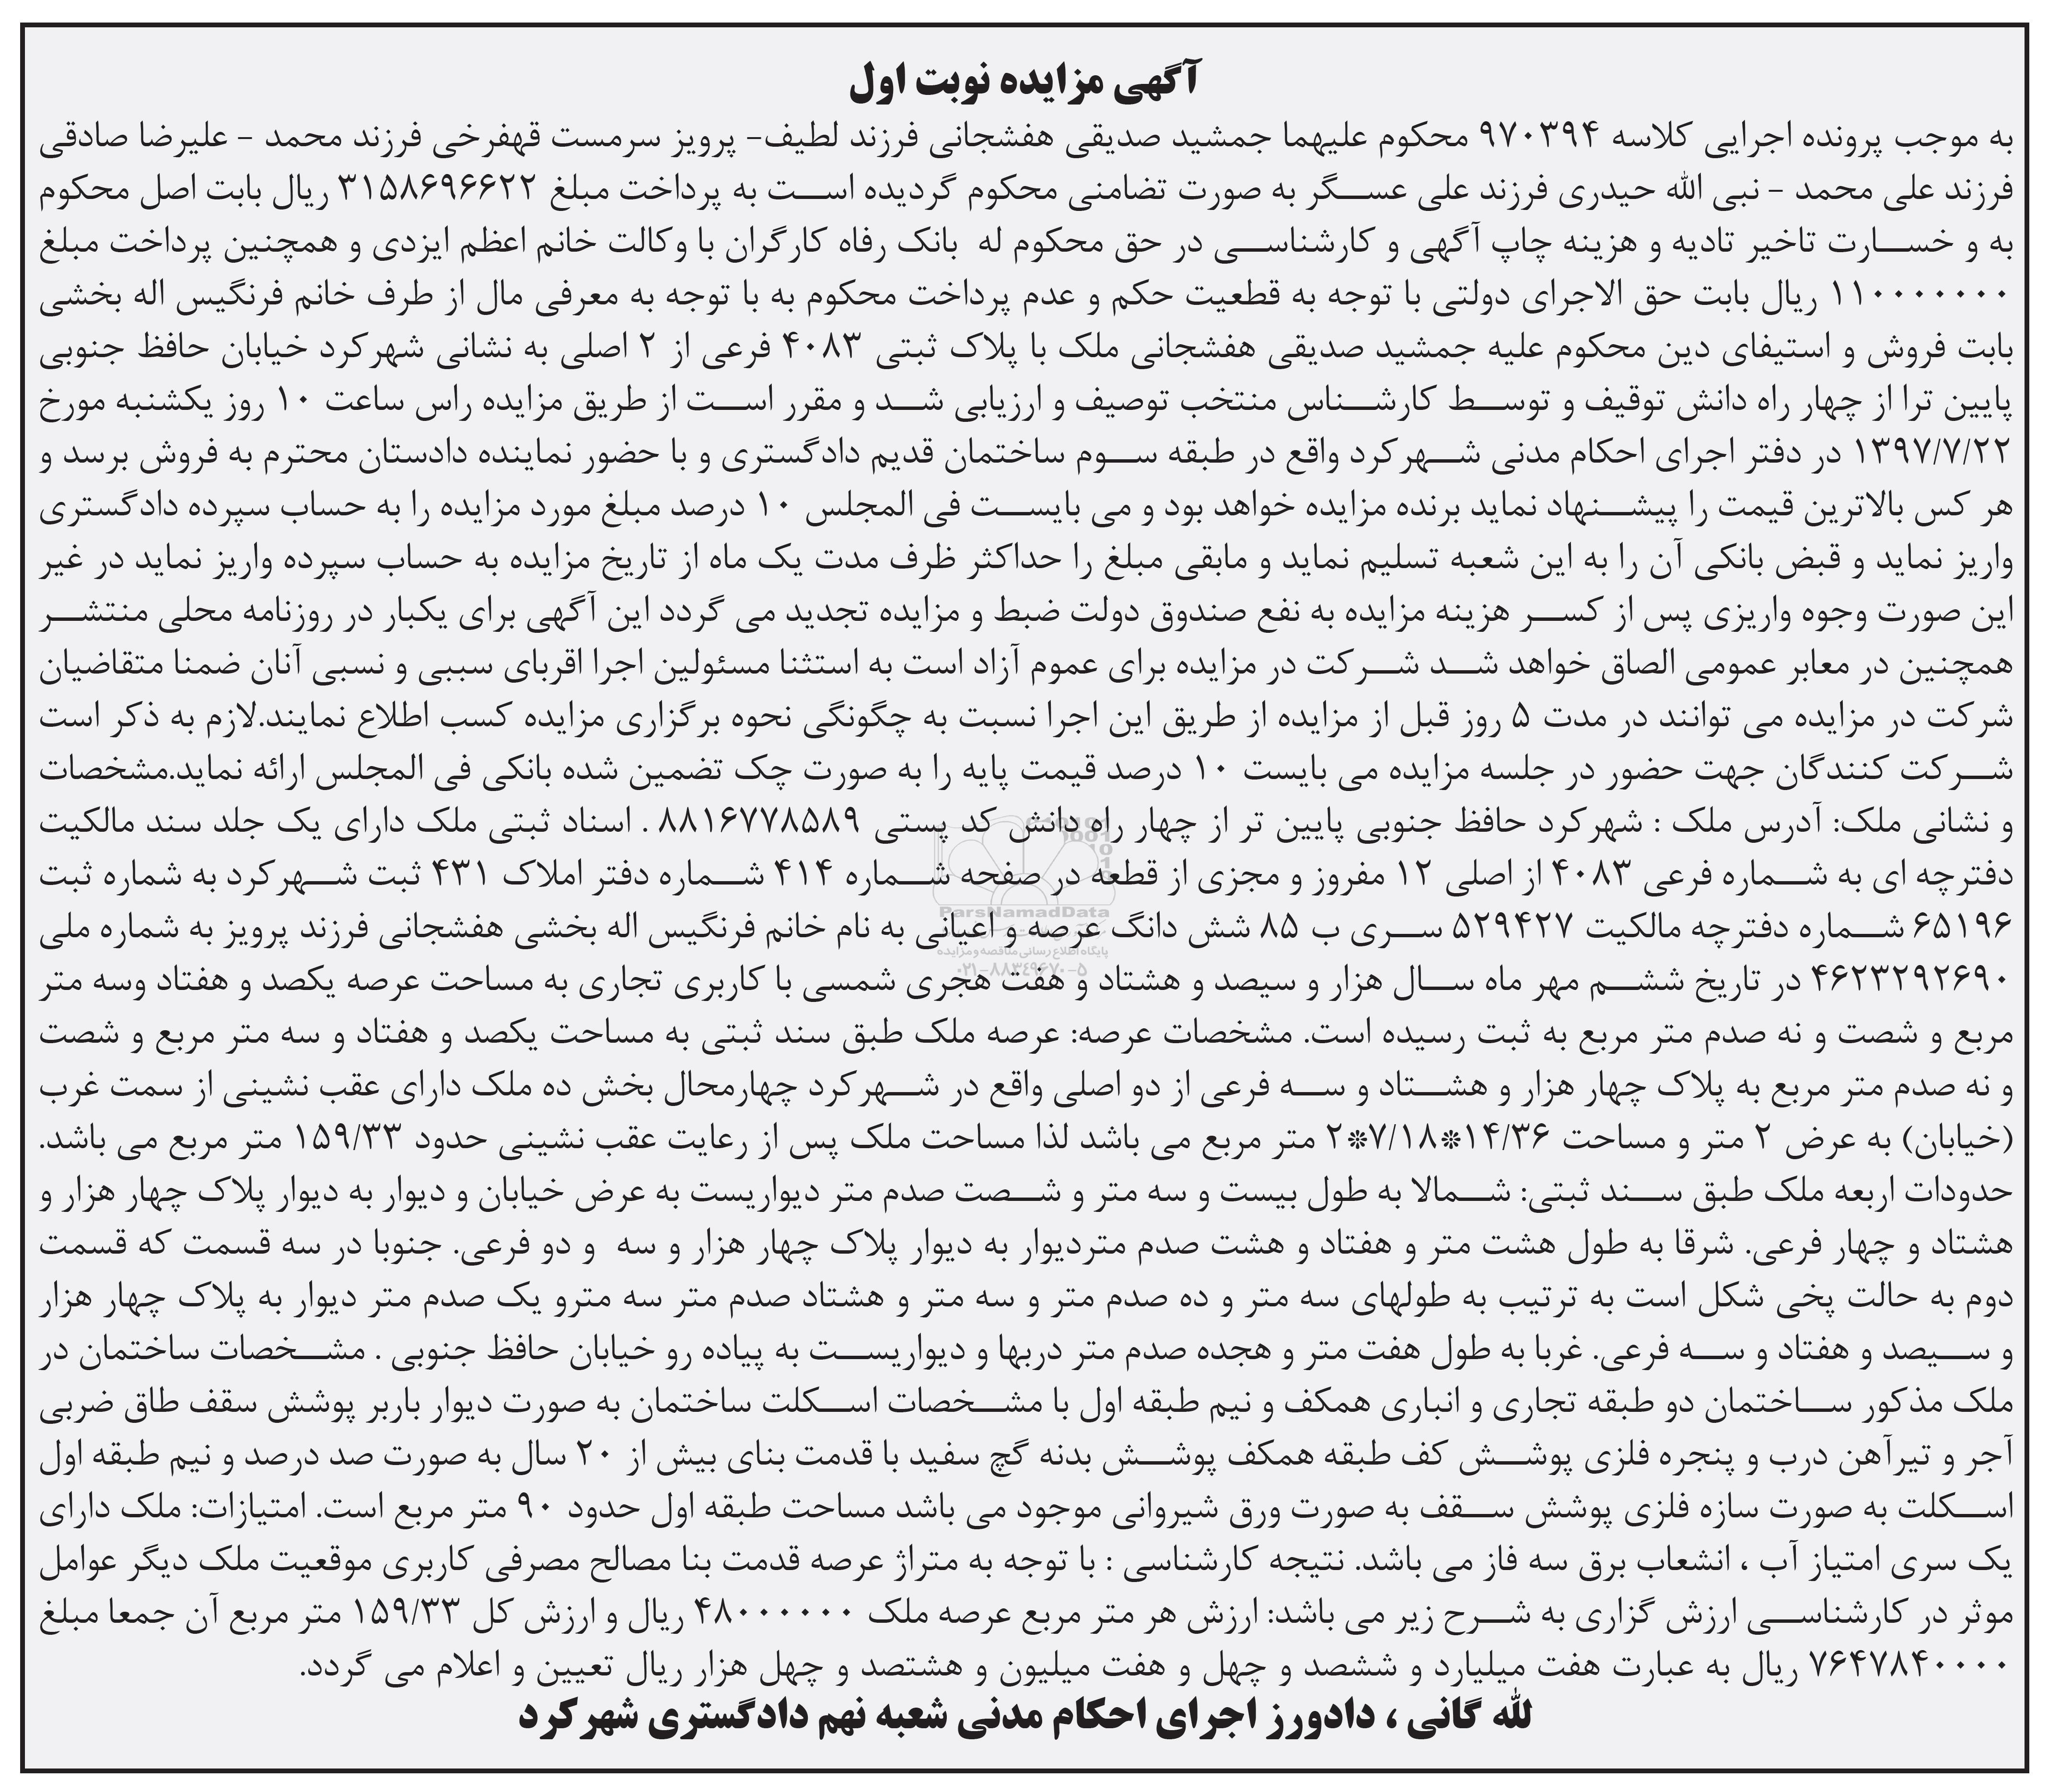 آگهی مزایده نوبت اول
به موجب پرونده اجرایی کلاسه ۹۷۰۳۹۴ محکوم علیهما جمشید صدیقی هفشجانی فرزند لطیف- پرویز سرمست قهفرخی فرزند محمد - علیرضا صادقی
فرزند علی محمد - نبی الله حیدری فرزند علی عسگر به صورت تضامنی محکوم گردیده است به پرداخت مبلغ ۳۱۵۸۶۹۶۶۲۲ ریال بابت اصل محکوم
به و خسارت تاخیر تادیه و هزینه چاپ آگهی و کارشناسی در حق محکوم له بانک رفاه کارگران با وکالت خانم اعظم ایزدی و همچنین پرداخت مبلغ
۱۱۰۰۰۰۰۰۰ ریال بابت حق الاجرای دولتی با توجه به قطعیت حکم و عدم پرداخت محکوم به با توجه به معرفی مال از طرف خانم فرنگیس اله بخشی
بابت فروش و استیفای دین محکوم علیه جمشید صدیقی هفشجانی ملک با پلاک ثبتی ۴۰۸۳ فرعی از ۲ اصلی به نشانی شهرکرد خیابان حافظ جنوبی
پایین ترا از چهار راه دانش توقیف و توسط کارشناس منتخب توصیف و ارزیابی شد و مقرر است از طریق مزایده راس ساعت ۱۰ روز یکشنبه مورخ
۱۳۹۷/۷/۲۲ در دفتر اجرای احکام مدنی شهرکرد واقع در طبقه سوم ساختمان قدیم دادگستری و با حضور نماینده دادستان محترم به فروش برسد و
هر کس بالاترین قیمت را پیشنهاد نماید برنده مزایده خواهد بود و می بایست فی المجلس ۱۰ درصد مبلغ مورد مزایده را به حساب سپرده دادگستری
واریز نماید و قبض بانکی آن را به این شعبه تسلیم نماید و مابقی مبلغ را حداکثر ظرف مدت یک ماه از تاریخ مزایده به حساب سپرده واریز نماید در غیر
این صورت وجوه واریزی پس از کسر هزینه مزایده به نفع صندوق دولت ضبط و مزایده تجدید می گردد این آگهی برای یکبار در روزنامه محلی منتشر
همچنین در معابر عمومی الصاق خواهد شد شرکت در مزایده برای عموم آزاد است به استثنا مسئولین اجرا اقربای سببی و نسبی آنان ضمنا متقاضیان
شرکت در مزایده می توانند در مدت ۵ روز قبل از مزایده از طریق این اجرا نسبت به چگونگی نحوه برگزاری مزایده کسب اطلاع نمایند.لازم به ذکر است
شرکت کنندگان جهت حضور در جلسه مزایده می بایست ۱۰ درصد قیمت پایه را به صورت چک تضمین شده بانکی فی المجلس ارائه نماید.مشخصات
و نشانی ملک: آدرس ملک : شهرکرد حافظ جنوبی پایین تر از چهار راه دانش کد پستی ۸۸۱۶۷۷۸۵۸۹ . اسناد ثبتی ملک دارای یک جلد سند مالکیت
دفترچه ای به شماره فرعی ۴۰۸۳ از اصلی ۱۲ مفروز و مجزی از قطعه در صفحه شماره ۴۱۴ شماره دفتر املاک ۴۳۱ ثبت شهرکرد به شماره ثبت
۶۵۱۹۶ شماره دفترچه مالکیت ۵۲۹۴۲۷ سری ب ۸۵ شش دانگ عرصه و اعیانی به نام خانم فرنگیس اله بخشی هفشجانی فرزند پرویز به شماره ملی
۴۶۲۳۲۹۲۶۹۰ در تاریخ ششم مهر ماه سال هزار و سیصد و هشتاد و هفت هجری شمسی با کاربری تجاری به مساحت عرصه یکصد و هفتاد وسه متر
مربع و شصت و نه صدم متر مربع به ثبت رسیده است. مشخصات عرصه: عرصه ملک طبق سند ثبتی به مساحت یکصد و هفتاد و سه متر مربع و شصت
و نه صدم متر مربع به پلاک چهار هزار و هشتاد و سه فرعی از دو اصلی واقع در شهرکرد چهارمحال بخش ده ملک دارای عقب نشینی از سمت غرب
(خیابان) به عرض ۲ متر و مساحت ۱۴/۳۶*۷/۱۸*۲ متر مربع می باشد لذا مساحت ملک پس از رعایت عقب نشینی حدود ۱۵۹/۳۳ متر مربع می باشد.
حدودات اربعه ملک طبق سند ثبتی: شمالا به طول بیست و سه متر و شصت صدم متر دیواریست به عرض خیابان و دیوار به دیوار پلاک چهار هزار و
هشتاد و چهار فرعی. شرقا به طول هشت متر و هفتاد و هشت صدم متردیوار به دیوار پلاک چهار هزار و سه و دو فرعی. جنوبا در سه قسمت که قسمت
دوم به حالت پخی شکل است به ترتیب به طولهای سه متر و ده صدم متر و سه متر و هشتاد صدم متر سه مترو یک صدم متر دیوار به پلاک چهار هزار
و سیصد و هفتاد و سه فرعی. غربا به طول هفت متر و هجده صدم متر دربها و دیواریست به پیاده رو خیابان حافظ جنوبی . مشخصات ساختمان در
ملک مذکور ساختمان دو طبقه تجاری و انباری همکف و نیم طبقه اول با مشخصات اسکلت ساختمان به صورت دیوار باربر پوشش سقف طاق ضربی
آجر و تیرآهن درب و پنجره فلزی پوشش کف طبقه همکف پوشش بدنه گچ سفید با قدمت بنای بیش از ۲۰ سال به صورت صد درصد و نیم طبقه اول
اسکلت به صورت سازه فلزی پوشش سقف به صورت ورق شیروانی موجود می باشد مساحت طبقه اول حدود ۹۰ متر مربع است. امتیازات: ملک دارای
یک سری امتیاز آب ، انشعاب برق سه فاز می باشد. نتیجه کارشناسی : با توجه به متراژ عرصه قدمت بنا مصالح مصرفی کاربری موقعیت ملک دیگر عوامل
موثر در کارشناسی ارزش گزاری به شرح زیر می باشد: ارزش هر متر مربع عرصه ملک ۴۸۰۰۰۰۰۰ ریال و ارزش کل ۱۵۹/۳۳ متر مربع آن جمعا مبلغ
۷۶۴۷۸۴۰۰۰۰ ریال به عبارت هفت میلیارد و ششصد و چهل و هفت میلیون و هشتصد و چهل هزار ریال تعیین و اعلام می گردد.
لله گانی ، دادورز اجرای احکام مدنی شعبه نهم دادگستری شهرکرد
ParsNamadData
پایگاه اطلاع رسانی مناقصه و مزایده
۰۲۱-۸۸۳۴۹۶۷۰-۵